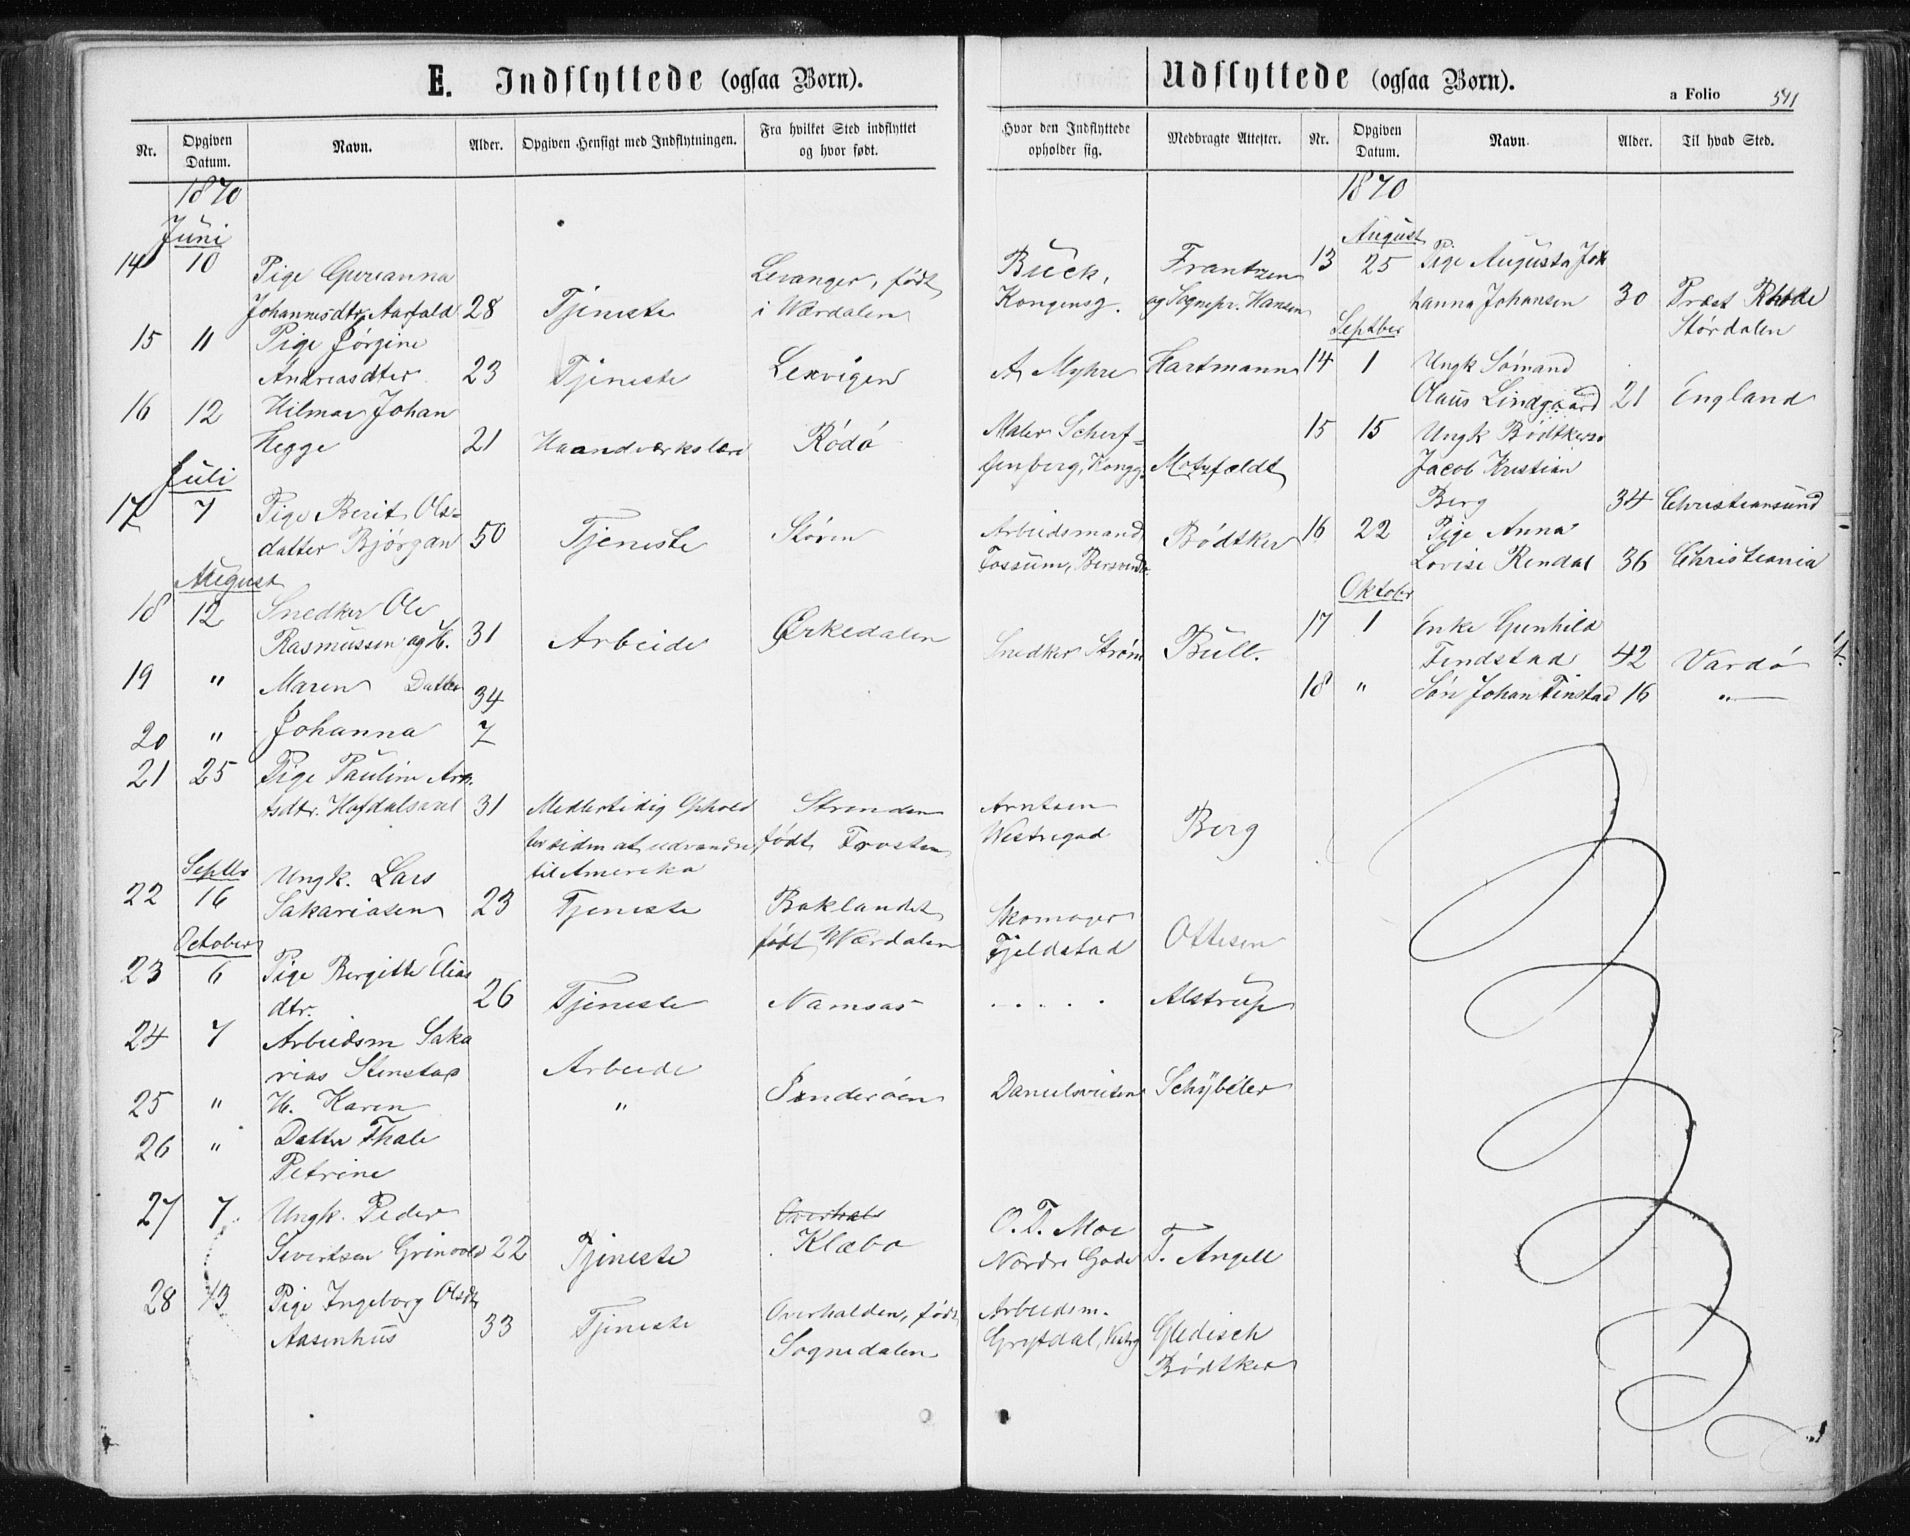 E. Indflyttede (ogsaa Børn).
Udflyttede (ogsaa Børn).
a Folio 541
Nr. Opgiven Datum. Navn. Alder. Opgiven Hensigt med Indflytningen. Fra hvilket Sted indflyttet og hvor født.
Hvor den Indflyttede opholder sig. Medbragte Attester. Nr. Opgiven Datum. Navn. Alder. Til hvad Sted.
1870
Juni
14 10 Pige Gurianna Levanger, født Buck, Frantzen
Johannesdtr. Aarfald 28 Tjeneste i Værdalen Kongensg. og Sognepr. Hansen
15 11 Pige Jørgine
Andreasdter 23 Tjeneste Lexvigen A Myhre Hartmann
16 12 Hilmar Johan Maler Scherf-
Hegge 21 Haandværkslære Rödö fenberg, Kongg. Motzfeldt
Juli
17 7 Pige Berit, Ols-
datter Bjørgan 50 Tjeneste Støren Arbeidsmand Bödtker
Fossum,
August
18 12 Snedker Ole
Rasmussen og H. 31 Arbeide Ørkedalen Snedker Strøm Bull.
19 " Maren Datter 34
20 " Johanna 7
21 25 Pige Pauline Arn
tsdtr. Hofdalsaval 31 Medlertidig Ophold Strinden Arntsen
for siden at udvandre født Frosten Westregad Berg
til Amerika
Septbr
22 16 Ungk. Lars
Sakariasen 23 Tjeneste Baklandet Skomager
født Værdalen Fjeldstad Ottesen
October
23 6 Pige Bergitte Elias
dtr. 26 Tjeneste Namsos . . . . . Alstrup
24 7 Arbeidsm Saka
rias Stenstad Arbeide
25 " H. Karen " Inderöen Danielsveiten Schübeler
26 " Datter Thale
Petrine
27 7 Ungk. Peder Overhals O. T. Moe
Sivertsen Grinvold 22 Tjeneste Klæbo Nordre Gade T. Angell
28 13 Pige Ingeborg Olsdtr Overhalden, født Arbeidsm.
Aasenhus 33 Tjeneste Sognedalen Grytdal, Gledisch
Bödtker
1870
August
13 25 Pige Augusta Jo
hanna Johansen 30 Præst Rhode
Størdalen
Septber
14 1 Ungk Sømand
Olaus Lindgaard 21 England
15 15 Ungk Bødtkers.
Jacob Kristian
Berg 34 Christiansund
16 22 Pige Anna
Lovise Rendal 36 Christiania
Oktober
17 1 Enke Gunhild
Findstad 42 Vardö
18 " Søn Johan Finstad 16 "